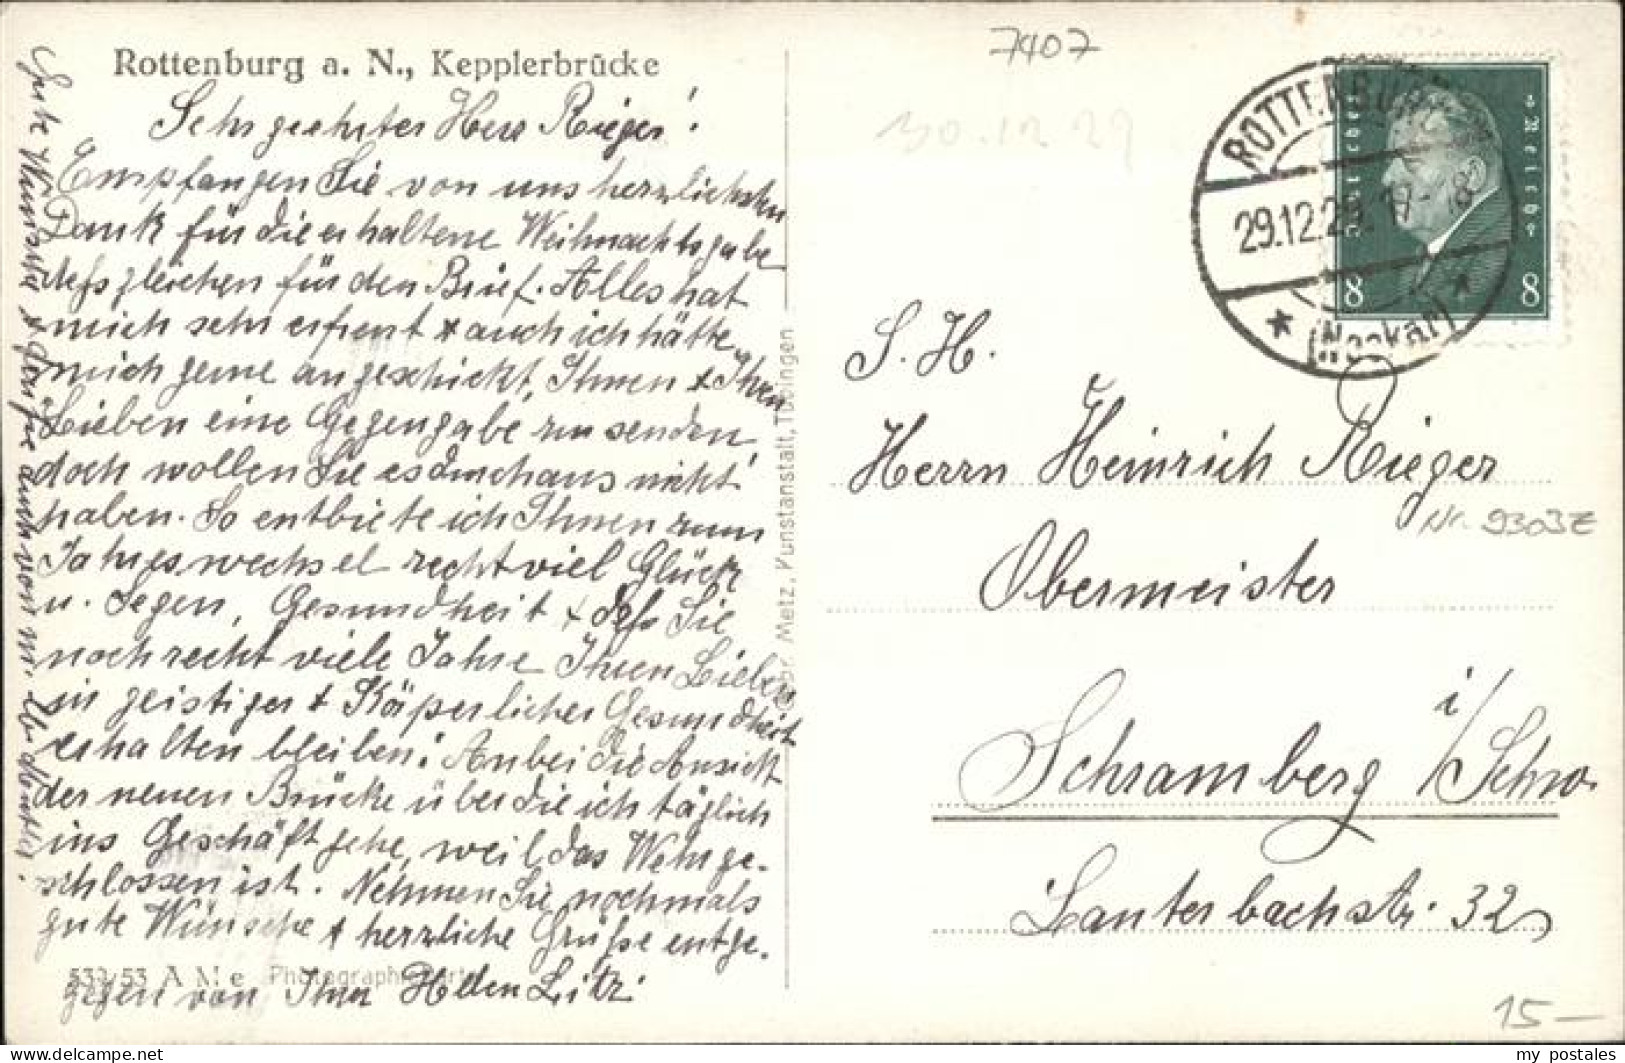 Rottenburg a. N., Kepplerbrücke
Sehr geehrter Herr Rieger!
Empfangen Sie von uns herzlichsten
Dank für die erhaltene Weihnachtsgabe
desgleichen für den Brief. Alles hat
mich sehr erfreut + auch ich hätte
mich gerne angeschickt, Ihnen + Ihren
Lieben eine Gegengabe zu senden,
doch wollen Sie es durchaus nicht
haben. So entbiete ich Ihnen zum
Jahreswechsel recht viel Glück
u. Segen, Gesundheit + daß Sie
noch recht viele Jahre Ihren Lieben
in geistiger + Körperlicher Gesundheit
erhalten bleiben! Anbei die Ansicht
der neuen Brücke über die ich täglich
ins Geschäft gehe, weil das Wehr ge-
schlossen ist. Nehmen Sie nochmals
gute Wünsche + herzliche Grüße entge-
gegen von Ihrer
Gute Wünsche + Grüße auch von m.
539/53 A M e Photographie
Gebr. Metz, Kunstanstalt, Tübingen
7407
30.12 29
ROTTENBURG
29.12.29. 17-18
(Neckar)
Deutsches Reich
8 8
S. H.
Herrn Heinrich Rieger
Nr. 9303Z
Obermeister
Schramberg i/Schw.
Lauterbachstr. 32
15 —
my postales